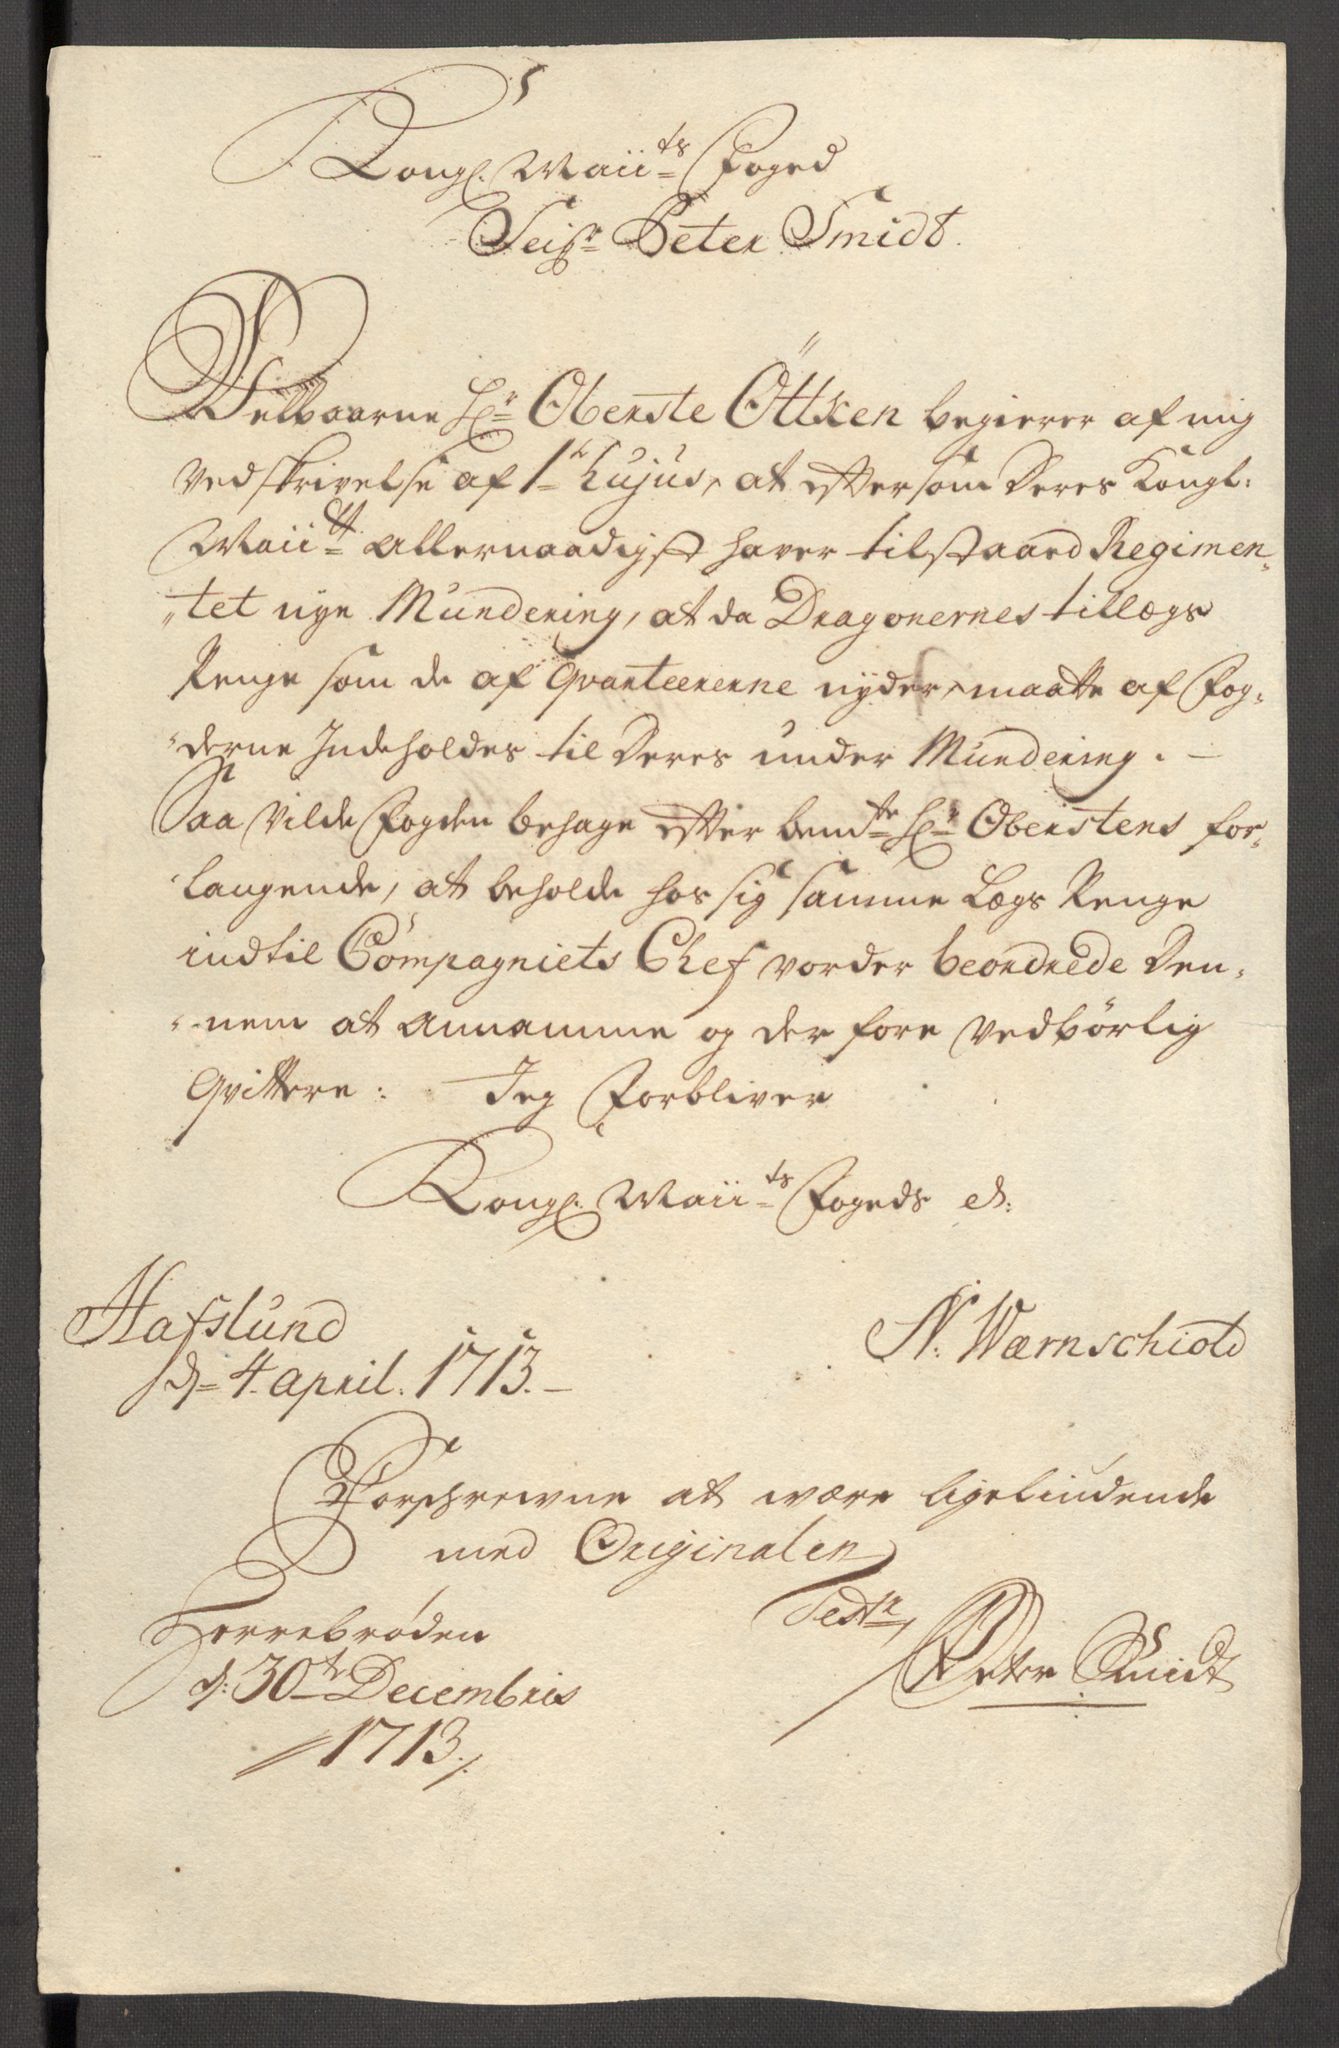 Kongl. Maii:ts Foged
Seig:r Peter Smidt.
Velbaarne H:r Oberste Öttken begierer af mig
ved skrivelse af 1:te hujus, at efftersom Deres Kongl:
Maii:tt allernaadigst haver tilstaaed Regimen-
tet nye Mundering, at da Dragonernes tillægs
Penge som de af Qvarteererne nyder, maatte af Fog-
derne Indeholdes til Deres under Mundering. –
Saa Vilde Fogden behage effter bem:te H:r Oberstens for-
langende, at beholde hos sig samme Lægs Penge
indtil Compagniets Chef vorder beordrede Den-
nem at annamme og der fore vedbørlig
Qvittere: Jeg Forbliver
Kongl. Maii:ts Fogeds
Hafslund
d. 4 april. 1713. –
N: Wærnschiold
Forschrewne at være ligeliudende
med Originalen
Test:r
Torrebrøden
d: 30:te Decembris
1713.
Peter Smidt